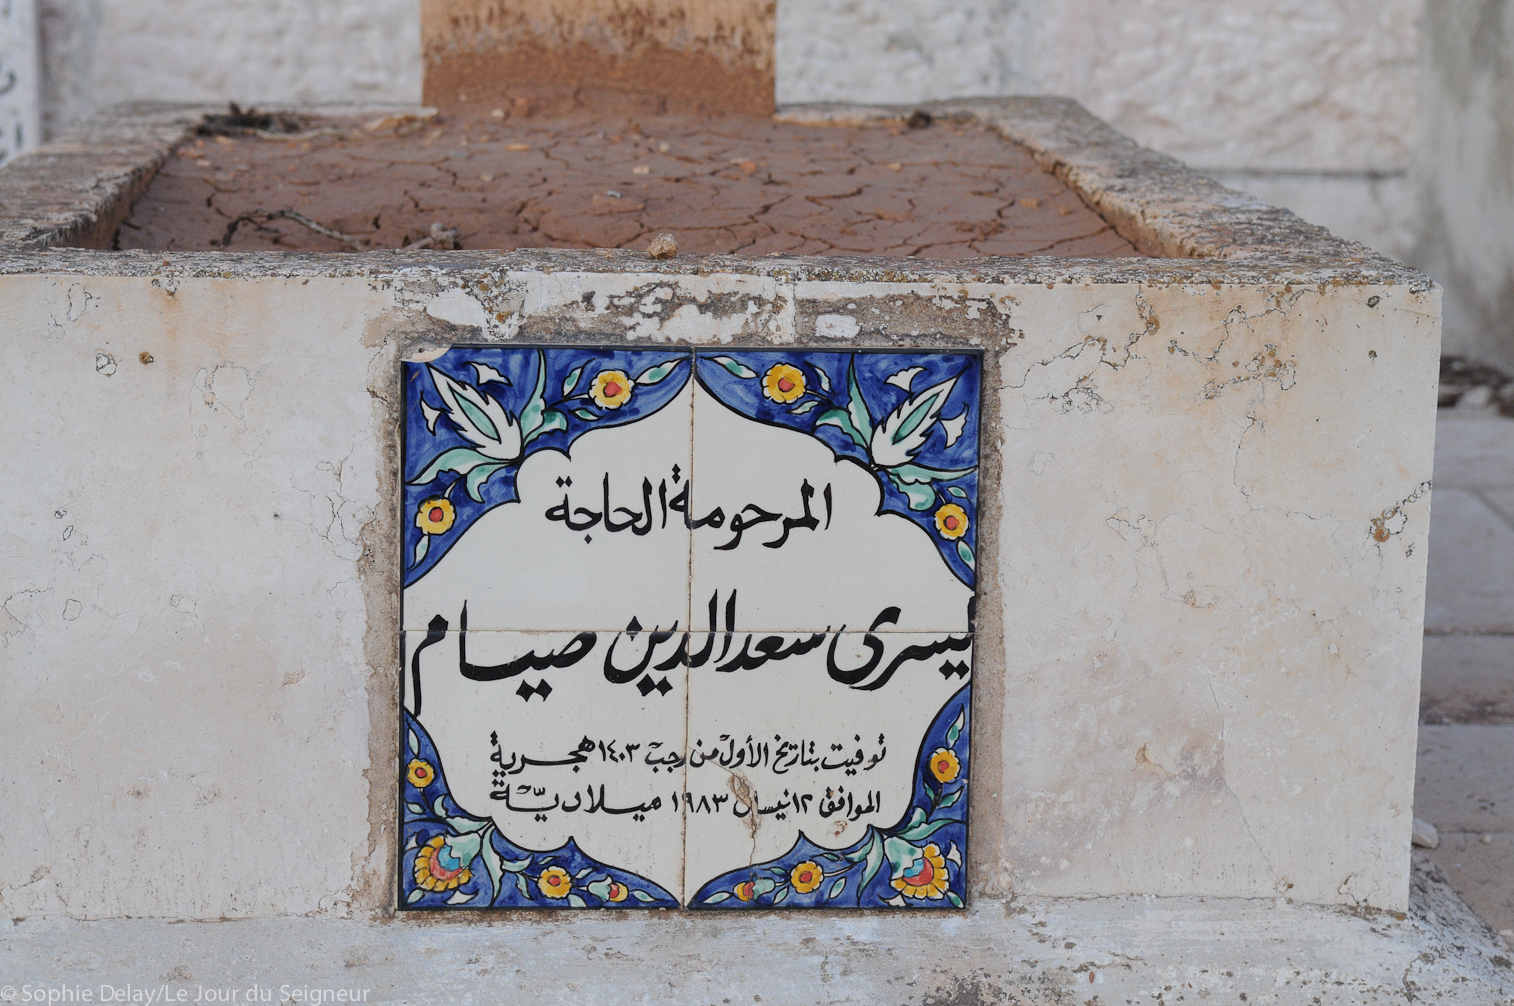 المرحومة الحاجة
يسرى سعد الدين صيام
توفيت بتاريخ الأول من رجب ١٤٠٣ هجرية
الموافق ١٢ نيسان ١٩٨٣ ميلاديّة
© Sophie Delay/Le Jour du Seigneur